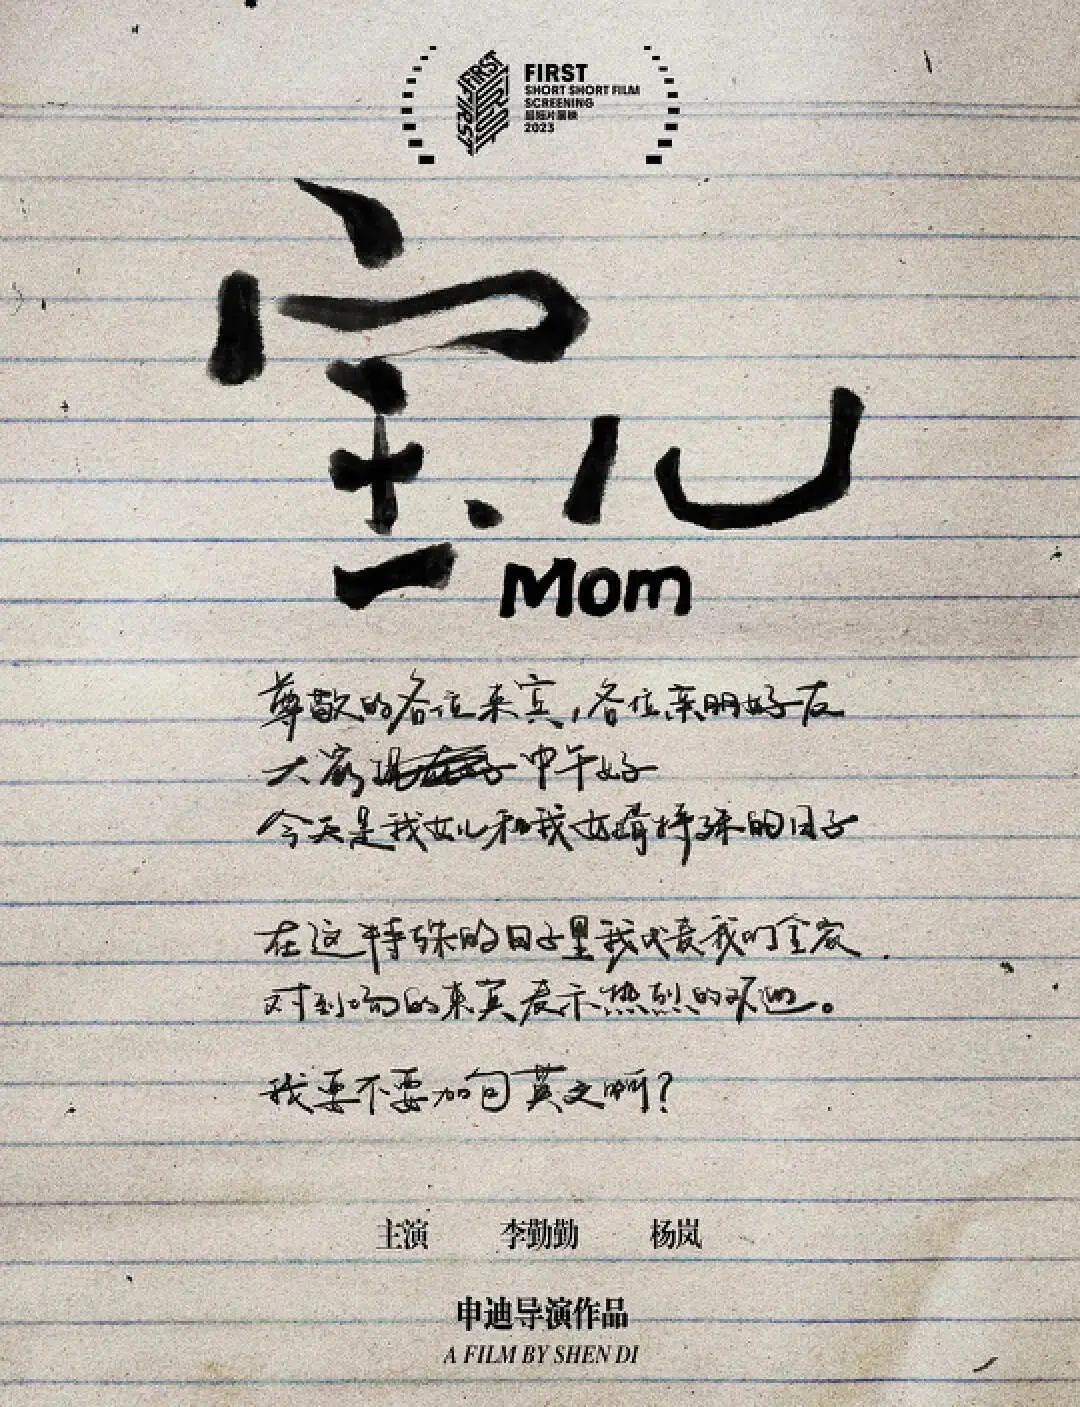 FIRST
SHORT SHORT FILM
SCREENING
超短片展映
2023
宝儿
Mom
尊敬的各位来宾，各位亲朋好友
大家 中午好
今天是我女儿和我女婿特殊的日子
在这特殊的日子里我代表我们全家
对到场的来宾表示热烈的欢迎。
我要不要加句英文啊？
主演 李勤勤 杨岚
申迪导演作品
A FILM BY SHEN DI